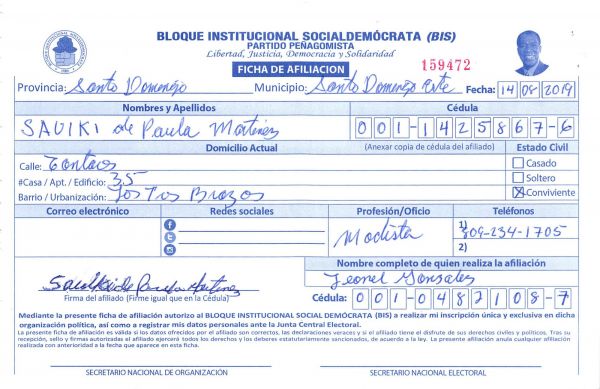 BLOQUE INSTITUCIONAL SOCIALDEMÓCRATA (BIS)
PARTIDO PEÑAGOMISTA
Libertad, Justicia, Democracia y Solidaridad
FICHA DE AFILIACION
159472
Provincia: Santo Domingo Municipio: Santo Domingo Este Fecha: 14 08 2019
Nombres y Apellidos Cédula
SAUIKI de Paula Martinez 001-1425867-6
Domicilio Actual (Anexar copia de cédula del afiliado) Estado Civil
Calle:
Casado
#Casa / Apt. / Edificio: 35
Soltero
Barrio / Urbanización: Los Tres Brazos
Conviviente
Correo electrónico Redes sociales Profesión/Oficio Teléfonos
Modista
1) 809-234-1705
2)
Nombre completo de quien realiza la afiliación
Leonel Gonzales
Firma del afiliado (Firme igual que en la Cédula)
Cédula: 001-0482108-7
Mediante la presente ficha de afiliación autorizo al BLOQUE INSTITUCIONAL SOCIAL DEMÓCRATA (BIS) a realizar mi inscripción única y exclusiva en dicha
organización política, así como a registrar mis datos personales ante la Junta Central Electoral.
La presente ficha de afiliación es válida si los datos ofrecidos por el afiliado son correctos, las declaraciones veraces y si el afiliado tiene el disfrute de sus derechos civiles y políticos. Tras su
recepción, sello y firmas autorizadas el afiliado ejercerá todos los derechos y los deberes estatutariamente sancionados, de acuerdo a la ley. La presente afiliación anula cualquier afiliación
realizada con anterioridad a la fecha que aparece en esta ficha.
SECRETARIO NACIONAL DE ORGANIZACIÓN SECRETARIO NACIONAL ELECTORAL